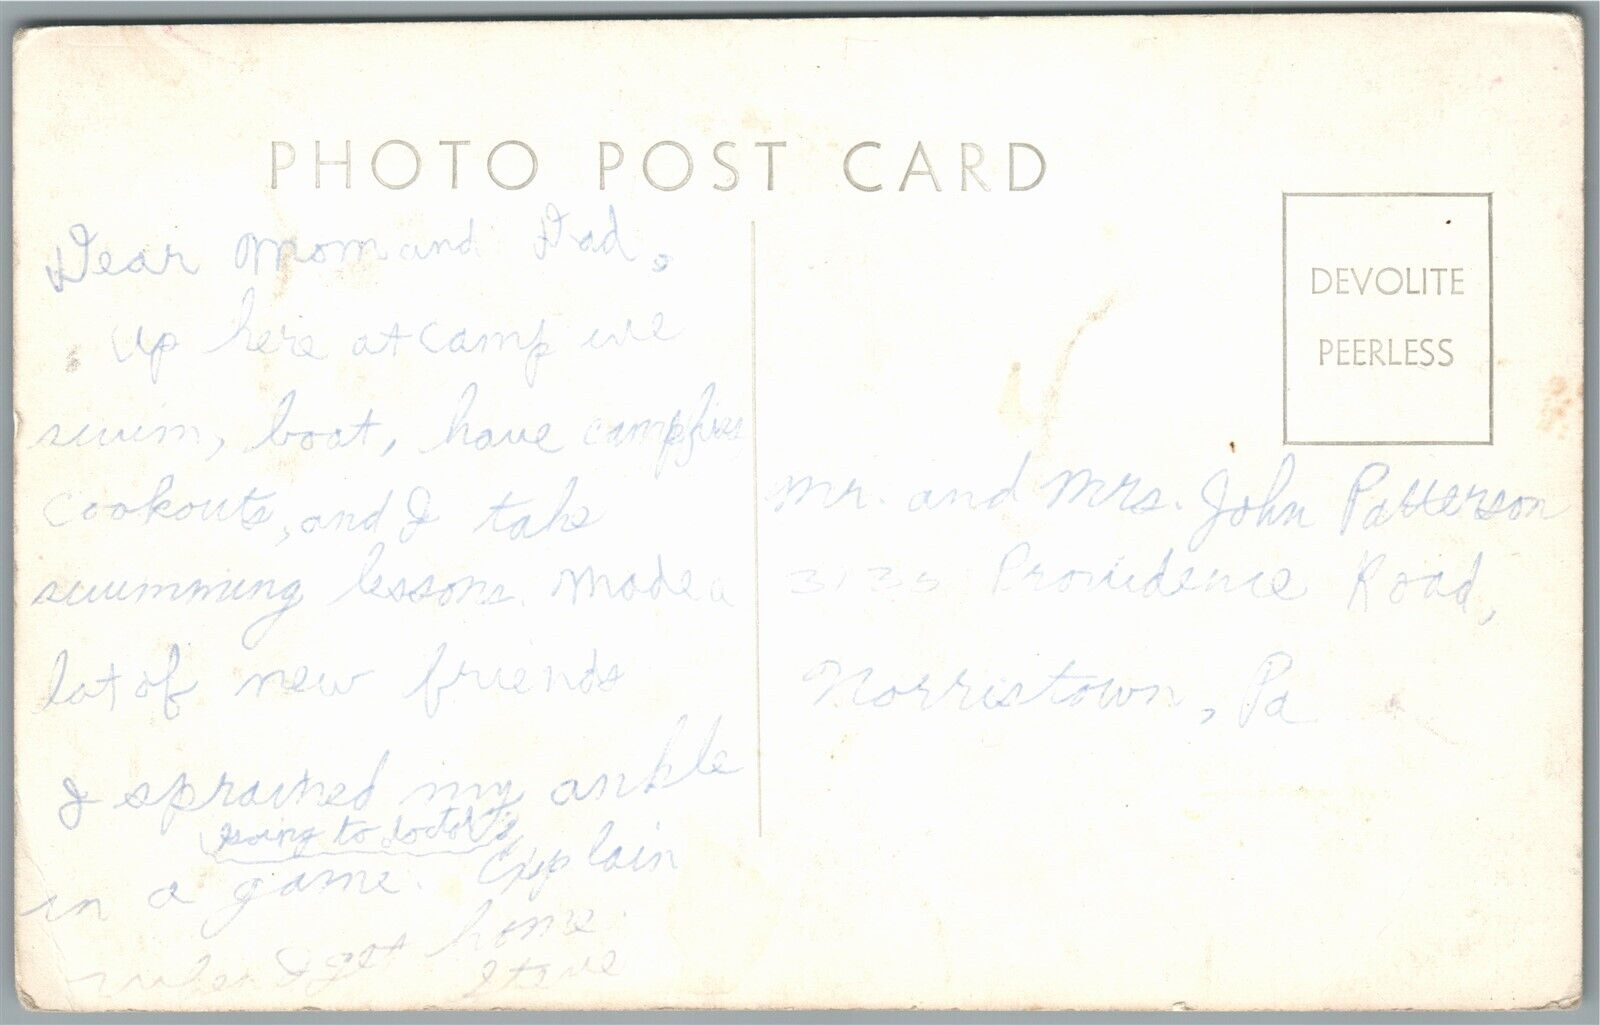 PHOTO POST CARD
DEVOLITE
PEERLESS
Dear Mom and Dad,
Up here at camp we
swim, boat, have campfires
cookouts, and I take
swimming lessons. Made a
lot of new friends
I sprained my ankle
going to doctor's
in a game. Explain
when I get home.
Steve
Mr. and Mrs. John Patterson
3135 Providence Road,
Norristown, Pa